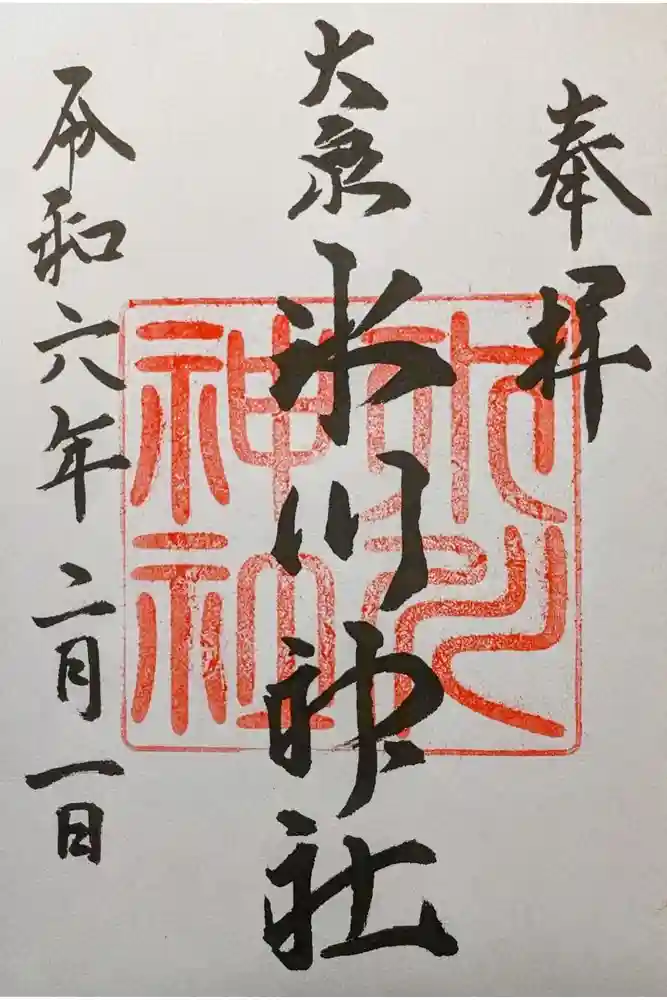 奉拝
大泉
氷川神社
令和六年二月一日
氷川
神社